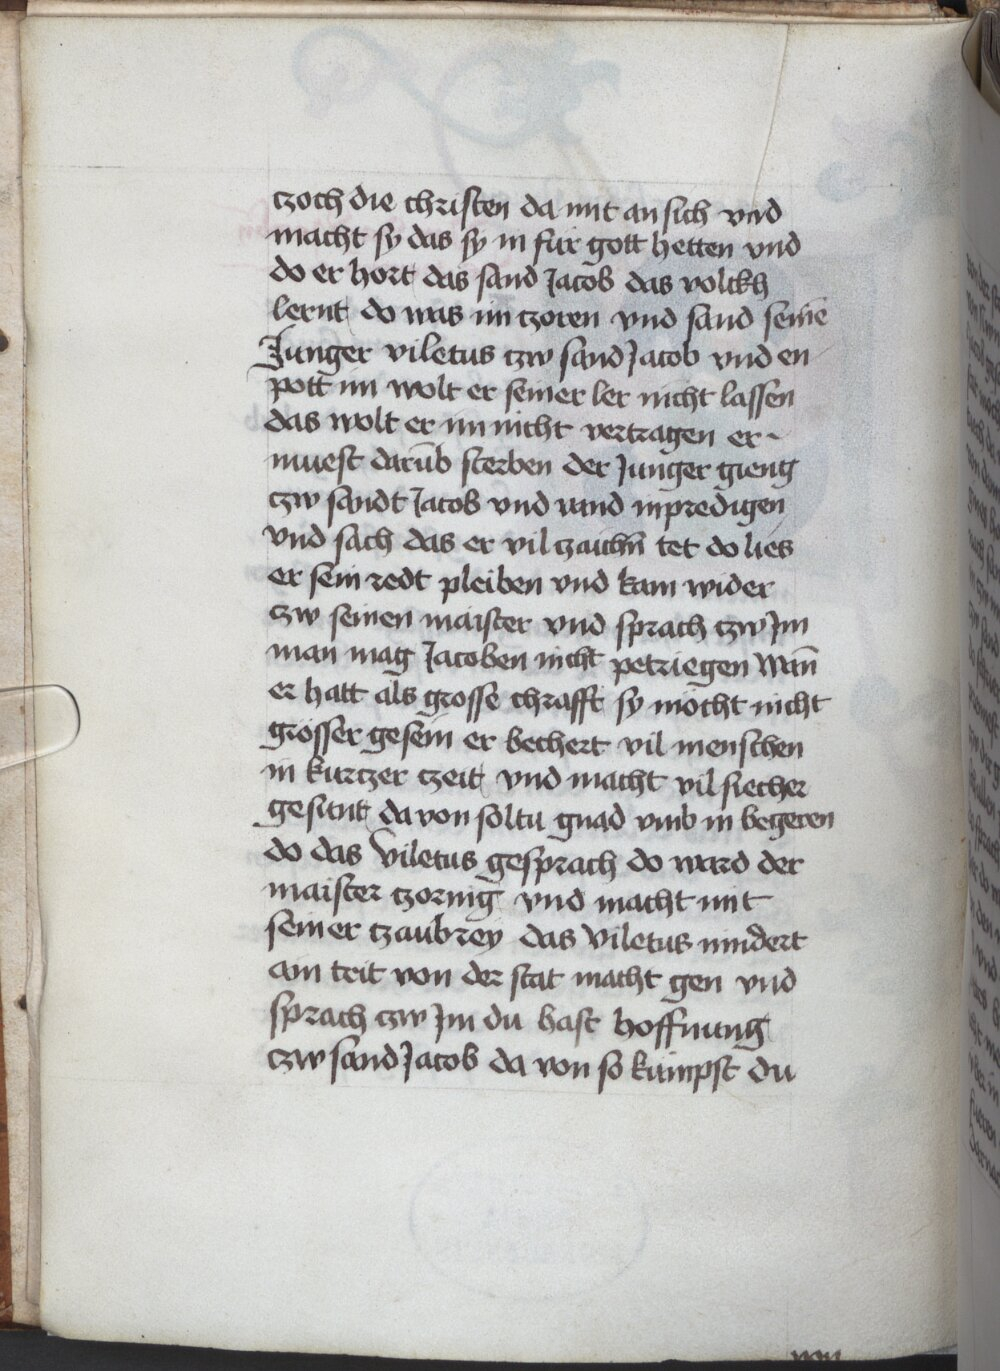 czoch die christen da mit an sich vnd
macht sy das sy in fur gott hetten vnd
do er hort das sand Jacob das volckh
lernt do was im czoren vnd sand seine̅
Junger viletus czw sand Jacob vnd en
pott im wolt er seiner ler nicht lassen
das wolt er im nicht vertragen er
muest daru̅b sterben der Junger gieng
czw sandt Jacob vnd vand in predigen
vnd sach das er vil czaichn̅ tet do lies
er sein redt pleiben vnd kam wider
czw seinen maister vnd sprach czw Im
man mag Jacoben nicht petriegen wan̅
er hatt als grosse chrafft sy mocht nicht
grosser gesein er bechert vil menschen
in kurczer czeit vnd macht vil siecher
gesunt da von soltu gnad vmb in begeren
do das Viletus gesprach do ward der
maister czornig vnd macht mit
seiner czaubrey das Viletus nindert
ain trit von der stat macht gen vnd
sprach czw Im du hast hoffnung
czw sand Jacob da von so kumpst du